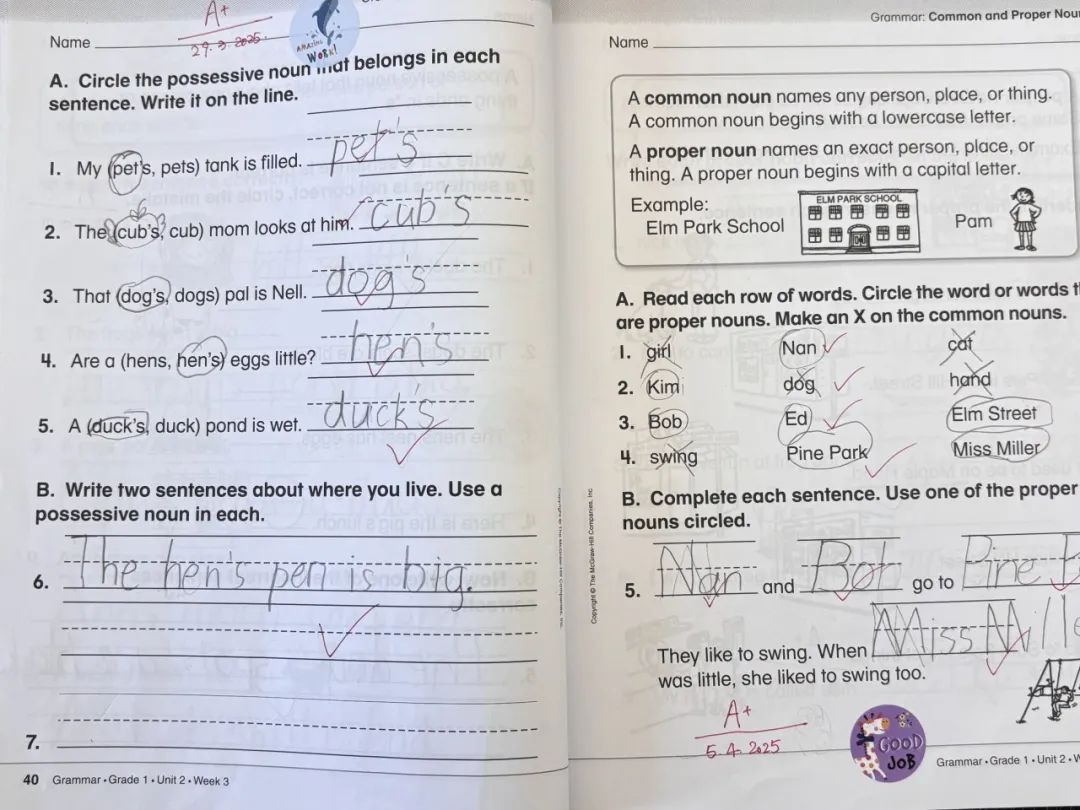 Name
A+
29.3.2025
AMAZING
WORK!
A. Circle the possessive noun that belongs in each
sentence. Write it on the line.
1. My (pet's, pets) tank is filled. pet's
2. The (cub's, cub) mom looks at him. cub's
3. That (dog's, dogs) pal is Nell. dog's
4. Are a (hens, hen's) eggs little? hen's
5. A (duck's, duck) pond is wet. duck's
B. Write two sentences about where you live. Use a
possessive noun in each.
6. The hen's pen is big.
7.
40 Grammar • Grade 1 • Unit 2 • Week 3
Copyright © The McGraw-Hill Companies, Inc.
Grammar: Common and Proper Nou
Name
A common noun names any person, place, or thing.
A common noun begins with a lowercase letter.
A proper noun names an exact person, place, or
thing. A proper noun begins with a capital letter.
Example:
Elm Park School
ELM PARK SCHOOL
Pam
A. Read each row of words. Circle the word or words t
are proper nouns. Make an X on the common nouns.
1. girl Nan cat
2. Kim dog hand
3. Bob Ed Elm Street
4. swing Pine Park Miss Miller
B. Complete each sentence. Use one of the proper
nouns circled.
5. Nan and go to
They like to swing. When Miss Mille
was little, she liked to swing too.
A+
5.4.2025
GOOD
JOB
Grammar • Grade 1 • Unit 2 • W